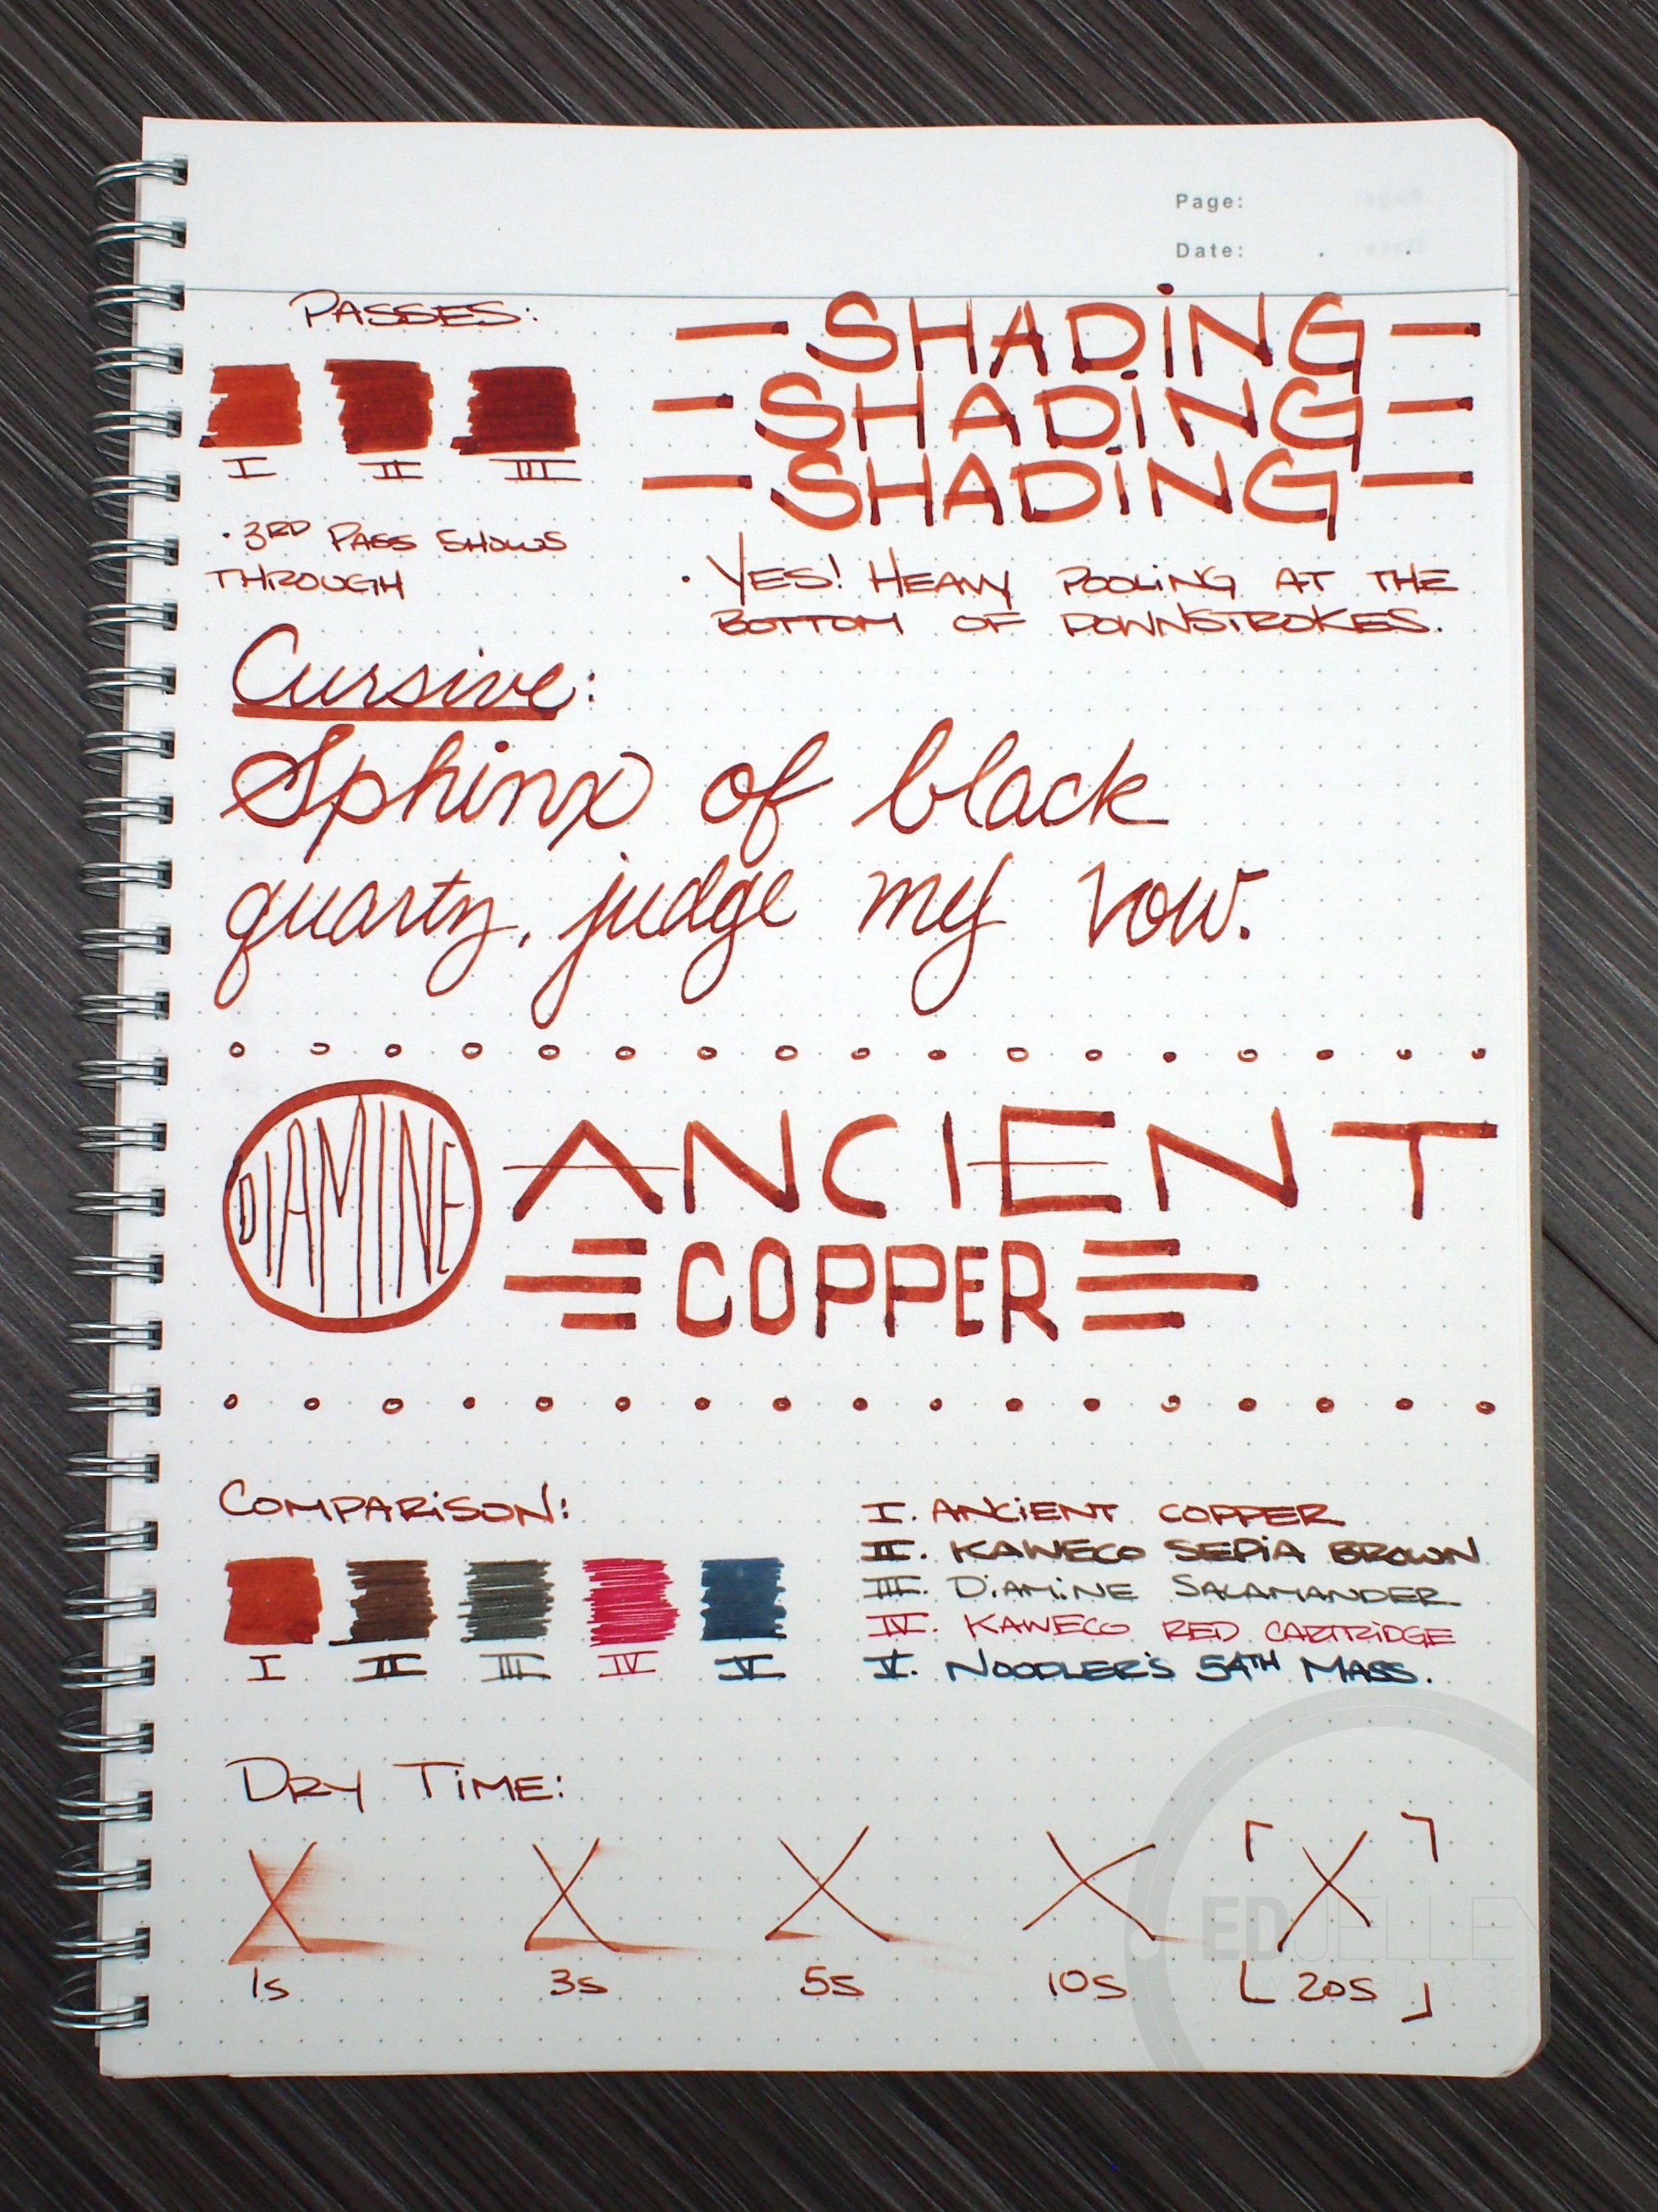 Page:
Date: . .
PASSES:
I II III
· 3RD PASS SHOWS
THROUGH
— SHADING —
— SHADING —
— SHADING —
· YES! HEAVY POOLING AT THE
BOTTOM OF DOWNSTROKES.
Cursive:
Sphinx of black
quartz, judge my vow.
DIAMINE
ANCIENT
COPPER
COMPARISON:
I II III IV V
I. ANCIENT COPPER
II. KAWECO SEPIA BROWN
III. DIAMINE SALAMANDER
IV. KAWECO RED CARTRIDGE
V. NOODLER'S 54TH MASS.
DRY TIME:
X X X X X
1s 3s 5s 10s 20s
EDJELLEY